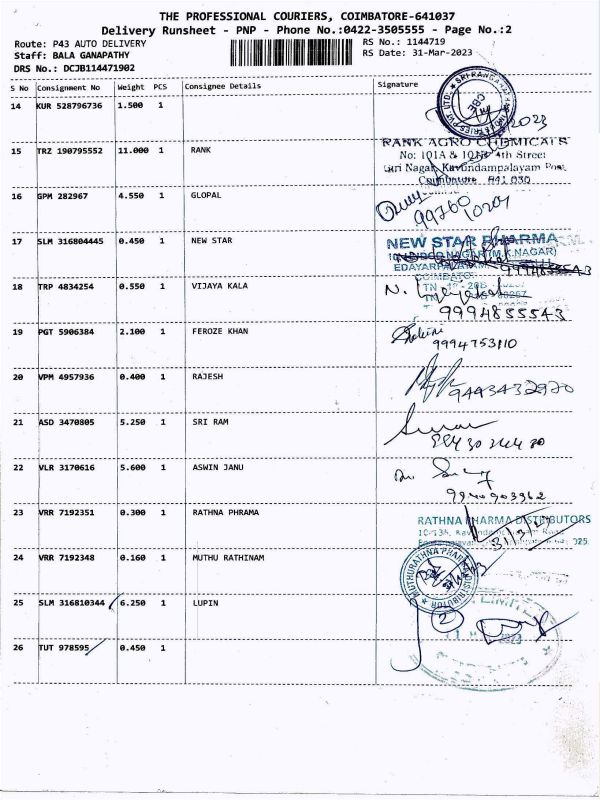 THE PROFESSIONAL COURIERS, COIMBATORE-641037
Delivery Runsheet - PNP - Phone No.:0422-3505555 - Page No.:2
Route: P43 AUTO DELIVERY RS No.: 1144719
Staff: BALA GANAPATHY RS Date: 31-Mar-2023
DRS No.: DCJB114471902
S No Consignment No Weight PCS Consignee Details Signature
14 KUR 528796736 1.500 1
2023
15 TRZ 190795552 11.000 1 RANK
RANK AGRO CHEMICALS
No: 101A & 101B 4th Street
Giri Nagar, Kavundampalayam Post,
Coimbatore 641 030
16 GPM 282967 4.550 1 GLOPAL
99760
10207
17 SLM 316804445 0.450 1 NEW STAR
NEW STAR PHARMA
EDAYARPALAYAM
COIMBATORE
18 TRP 4834254 0.550 1 VIJAYA KALA
9994855543
19 PGT 5906384 2.100 1 FEROZE KHAN
9994753110
20 VPM 4957936 0.400 1 RAJESH
9443432920
21 ASD 3470805 5.250 1 SRI RAM
22 VLR 3170616 5.600 1 ASWIN JANU
9940903962
23 VRR 7192351 0.300 1 RATHNA PHRAMA
RATHNA PHARMA DISTRIBUTORS
24 VRR 7192348 0.160 1 MUTHU RATHINAM
MUTHURATHNA PHARMA DISTRIBUTOR
25 SLM 316810344 6.250 1 LUPIN
2
26 TUT 978595 0.450 1